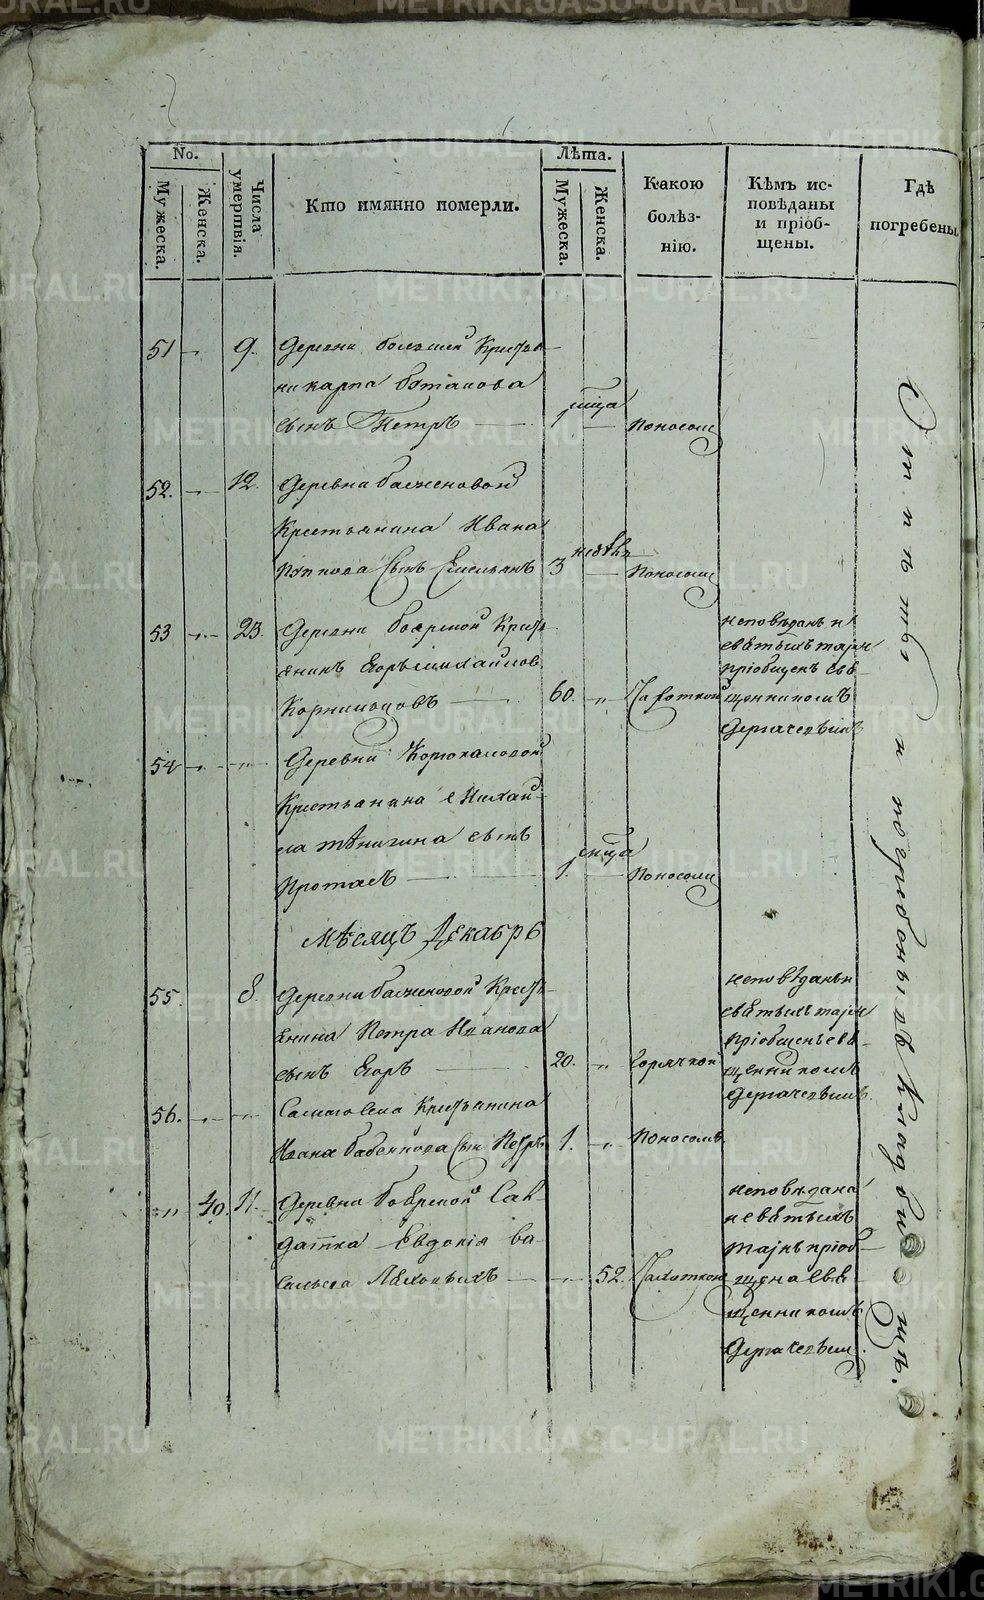 No.
Мужеска.
Женска.
Числа умертвія.
Кто имянно померли.
Лѣта.
Мужеска.
Женска.
Какою болѣз-нію.
Кѣмъ ис-повѣданы и пріоб-щены.
Гдѣ погребены.
51 " 9. Деревни Крестья-
ни карпа Потапова
сынъ Петръ 1 мца Поносомъ
52. " 12. Деревни баженовой
Крестьянина Ивана
сынъ Емельянъ 3 недѣль Поносомъ
53 " 23. Деревни боярской Кресть-
янинъ Егоръ михайловъ
Корниловъ 60. " Чахоткой
исповѣданъ и
святыхъ таинъ
пріобщенъ свя-
щенникомъ
Дергачевымъ
54 " " Деревни
Крестьянина Михай-
ла сынъ
Протасъ 1. мца Поносомъ
Мѣсяцъ Декабрь
55. 8. Деревни баженовой Кресть-
янина Петра Иванова
сынъ Егоръ 20. " Горячкой
исповѣданъ и
святыхъ таинъ
пріобщенъ свя-
щенникомъ
Дергачевымъ.
56. " " Самаго села Крестьянина
Ивана сынъ Петръ 1. " Поносомъ
" 40. 11. Деревни боярской Сал-
датка Евдокія ва-
сильева " 52. Чахоткою
исповѣдана
и святыхъ
таинъ пріоб-
щена свя-
щенникомъ
Дергачевымъ
на кладбищѣ.
METRIKI.GASO-URAL.RU